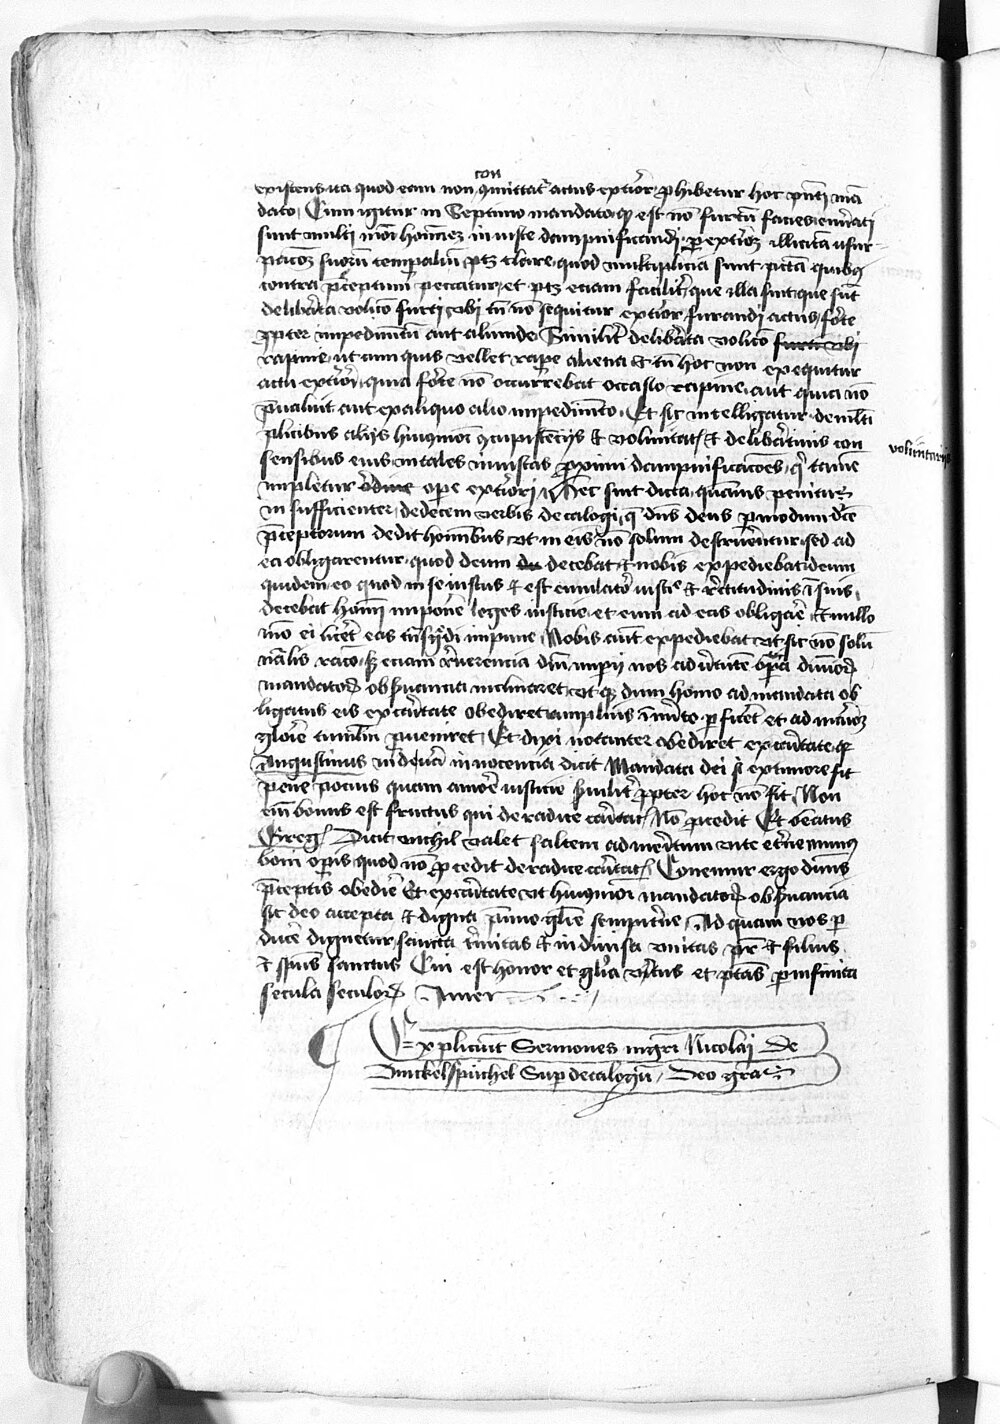 con
existens ita quod eam non qmittat actus exterior phibetur hoc pnti man
dato Cum igitur in Septimo mandato q est no furtu facies enerati
sunt multi modi homines iniuste dampnificandi p exteriorez illicita usur
pacoez suoru temporaliu ptz clare quod multiplicia sunt pcta quibus
contra preceptum peccatur et ptz eciam facilit que illa sint que sut
delibata volico furti vbi tn no sequitur exterior furandi actus forte
ppter impedimetu aut aliunde Similit deliberata volico furti vbi
rapine ut cum quis vellet rape aliena et tn hoc non exequitur
actu exteriori quia forte no occurrebat occasio rapine aut quia no
pualuit aut ex aliquo alio impedimeto Et sic intelligatur de multi
plicibus alijs huiusmodi qcupiscecijs et voluntat et deliberatiuis con
voluntarijs
sensibus eius in tales iniustas proximi dampnificacoes q tamen
impletur ordine ope exteriori Hec sint dicta quamuis penitus
insufficienter de decem verbis decalogi q dns deus p modum dce
preceptorum dedit hominibus vt in eis no solum destruerentur sed ad
ea obligarentur quod deum de decebat et nobis expediebat deum
quidem eo quod in se iustus et est emulator iusticie et rectitudinis i suis
decebat homi imponere leges iusticie et eum ad eas obligare et nullo
mo ei liceret eas tnsgdi impune Nobis aut expediebat vt sic no solu
nalis raco sz eciam reuerencia diui imperij nos ad virtutem opera diuinorum
mandatorum obseruancia inclinaret vt q dum homo ad mandata ob
ligatus eis ex caritate obediret amplius i merito pficeret et ad maiorez
glorie cumulum pueniret Et dixi notanter obediret ex caritate q
Augustinus in de vera innocencia dicit Mandata dei si ex timore fit
pene pocius quam amore iusticie seruiliter ppter hoc no fit Non
eni bonus est fructus qui de radice caritatis No pcedit Et beatus
Greg Dicit nichil valet saltem ad meritum vite eterne munus
boni operis quod no pcedit de radice caritatis Conemur ergo diuinis
preceptis obedire Et ex caritate vt huiusmodi mandatorum obseruancia
sit deo accepta et digna pmio glorie sempiterne Ad quam nos p
ducere dignetur sancta trinitas et indiuisa vnitas pr et filius
et spus sanctus Cui est honor et gloria virtus et ptas p infinita
secula seculorum Amen
Expliciut Sermones mgri Nicolai De
Dinckelspuchel Sup decalogu Deo gras